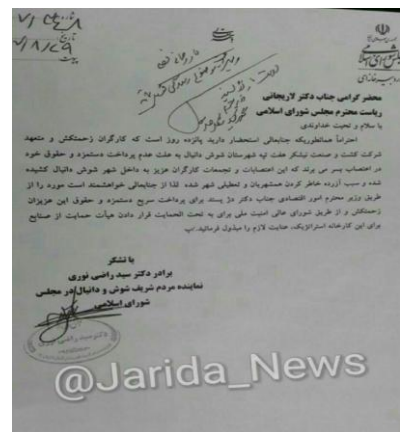 مجلس شورای اسلامی
محضر گرامی جناب دکتر لاریجانی
ریاست محترم مجلس شورای اسلامی
با سلام و تحیت خداوندی
احتراماً همانطوریکه جنابعالی استحضار دارید پانزده روز است که کارگران زحمتکش و متعهد
شرکت کشت و صنعت نیشکر هفت تپه شهرستان شوش دانیال به علت عدم پرداخت دستمزد و حقوق خود
در اعتصاب بسر می برند که این اعتصابات و تجمعات کارگران عزیز به داخل شهر شوش دانیال کشیده
شده و سبب آزرده خاطر کردن همشهریان و تعطیلی شهر شده لذا از جنابعالی خواهشمند است مورد را از
طریق وزیر محترم امور اقتصادی جناب دکتر دژ پسند برای پرداخت سریع دستمزد و حقوق این عزیزان
زحمتکش و از طریق شورای عالی امنیت ملی برای به تحت الحمایت قرار دادن هیأت حمایت از صنایع
برای این کارخانه استراتژیک، عنایت لازم را مبذول فرمائید.
با تشکر
برادر دکتر سید راضی نوری
نماینده مردم شریف شوش و دانیال در مجلس
شورای اسلامی
@Jarida_News